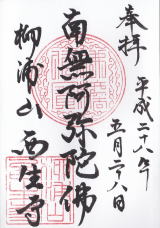 奉拝
平成二十八年
五月二十八日
南無阿弥陀佛
柳浦山
西生寺